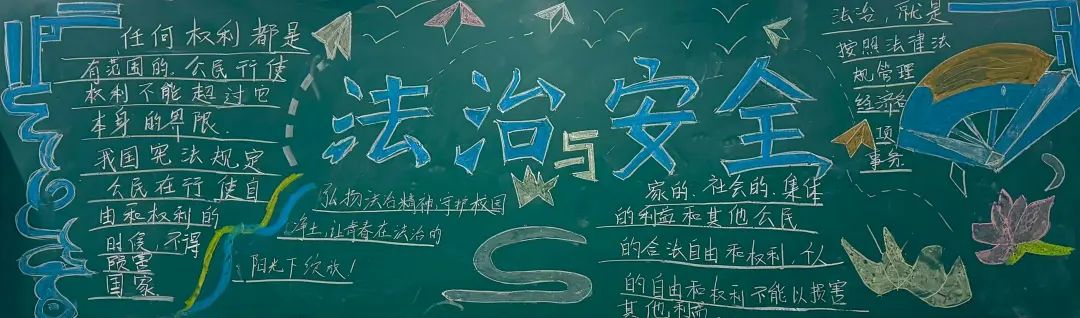 任何权利都是
有范围的.公民行使
权利不能超过它
本身的界限.
我国宪法规定
公民在行使自
由和权利的
时侯,不得
损害
国家
法治与安全
弘扬法治精神,守护校园
净土,让青春在法治的
阳光下绽放!
法治,就是
按照法律法
规管理
经济各
项
事务
家的.社会的.集体
的利益和其他公民
的合法自由和权利,个人
的自由和权利不能以损害
其他利益